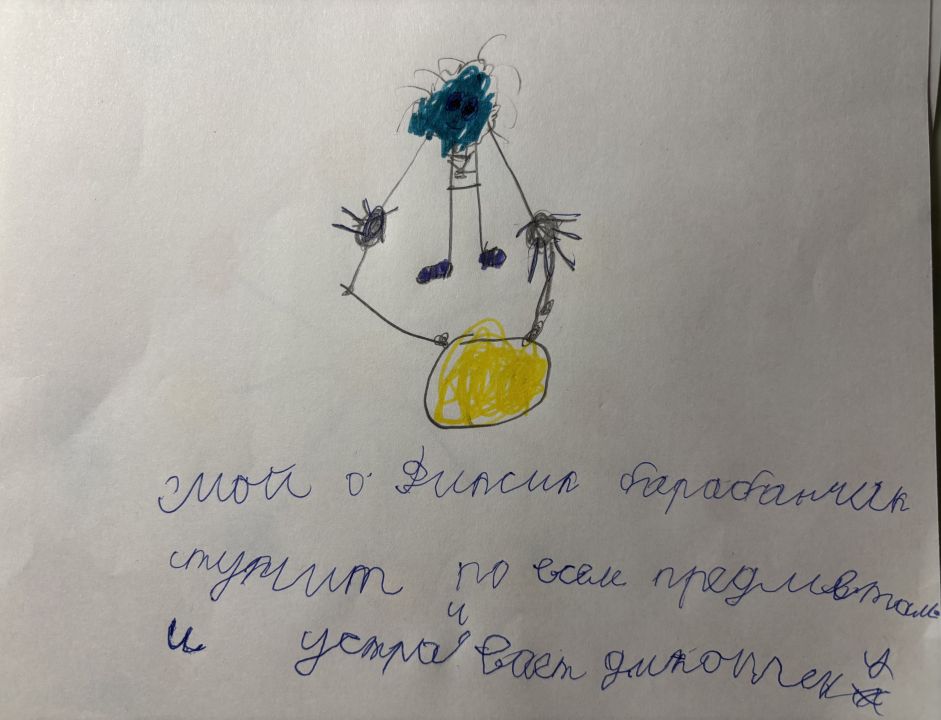 мой о Фиксик барабанчик
стучит по всем предметам
и устраивает дикотеку